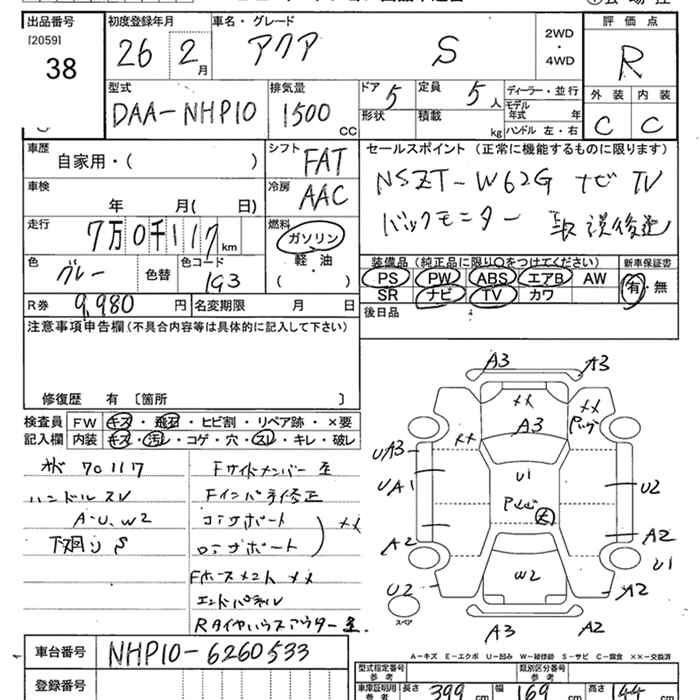 出品番号 初度登録年月 車名・グレード 評価点
[2059] 38 26 2月 アクア S 2WD・4WD R
型式 排気量 ドア 5 定員 5人 ディーラー・並行 外装 内装
DAA-NHP10 1500 CC 形状 積載 kg モデル年式 年 C C
ハンドル 左・右
車歴 シフト FAT セールスポイント (正常に機能するものに限ります)
自家用・( )
車検 冷房 AAC NSZT-W62G ナビ TV
年 月( 日) バックモニター 取説後送
走行 7万0千117km 燃料 ガソリン 軽油 ( )
装備品(純正品に限り○をつけてください) 新車保証書
色 グレー 色替 色コード 1G3 PS PW ABS エアB AW 有・無
SR ナビ TV カワ
R券 9,980円 名変期限 月 日 後日品
注意事項申告欄(不具合内容等は具体的に記入して下さい)
修復歴 有 〔箇所 〕
検査員 FW キズ・飛石・ヒビ割・リペア跡・×要
記入欄 内装 キズ・汚レ・コゲ・穴・スレ・キレ・破レ
70117 Fサイドメンバー
ハンドルスレ Fインパネ修正
A・U、W2 コアサポート
下廻りS ロアサポート ××
Fホースメント ××
エンドパネル
Rタイヤハウスアウター
A3 A3
×× A3 ××
×× UA3
UA1 U1 U2
A2 A2
U1
U2 W2 A2
スペア
A3 A2
A-キズ E-エクボ U-凹み W-補修跡 S-サビ C-腐食 ××-交換済
車台番号 NHP10-6260533
型式指定番号 参考 類別区分番号 参考
登録番号 車庫証明用 参考 長さ 399 cm 幅 169 cm 高さ 144 cm